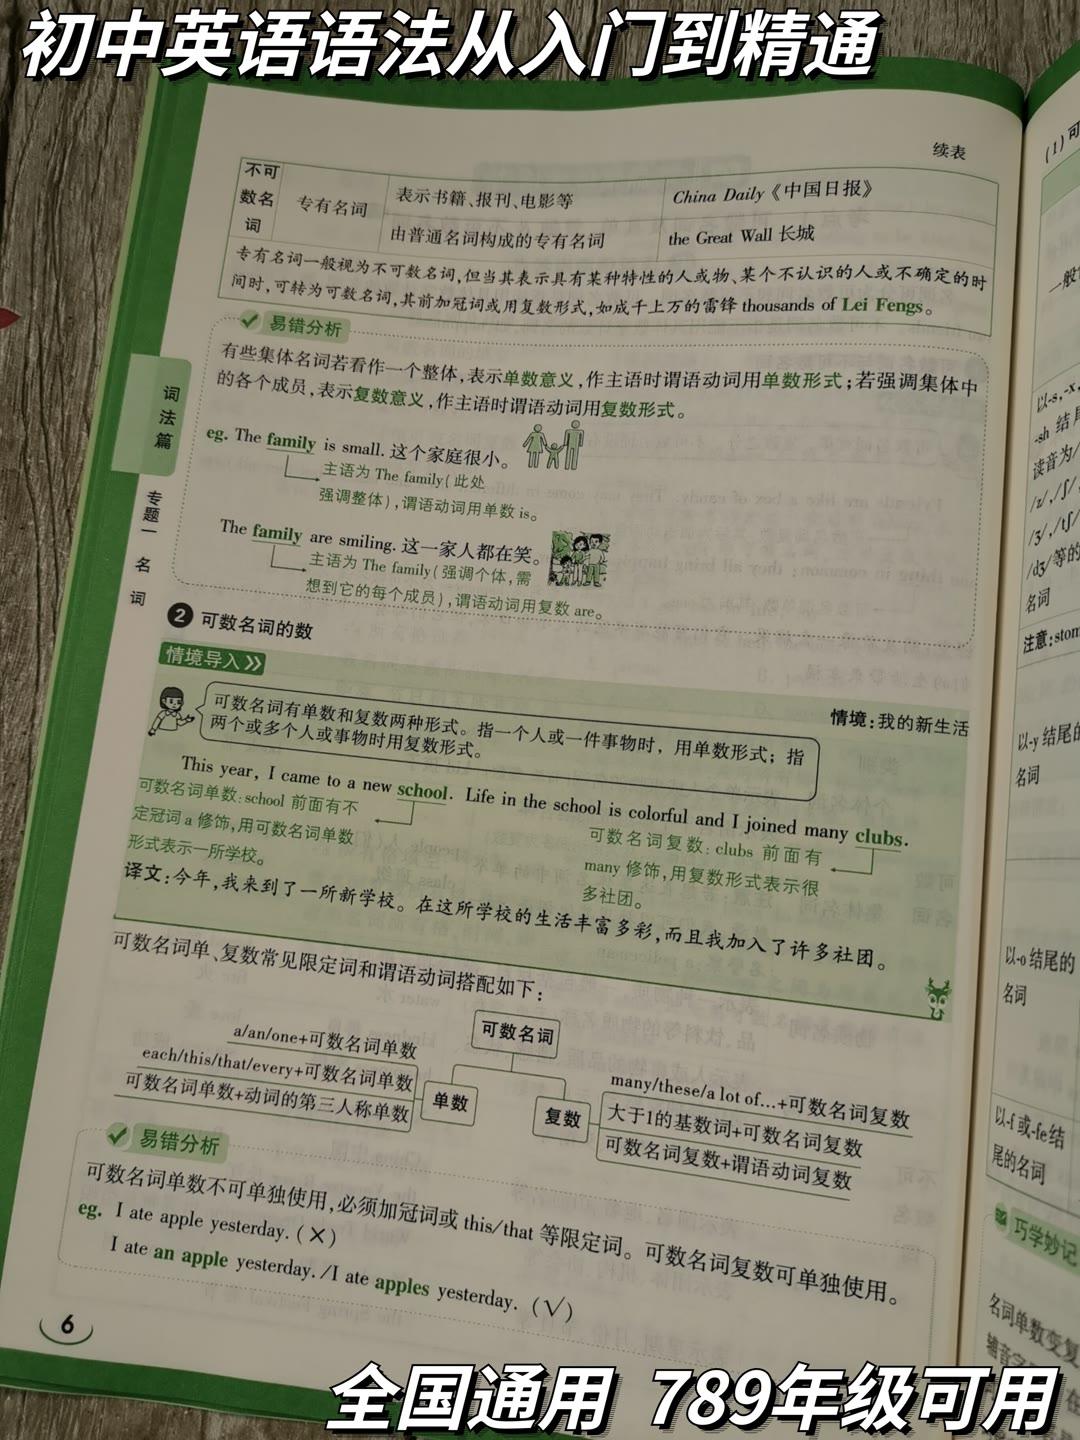 初中英语语法从入门到精通
续表
不可数名词
专有名词
表示书籍、报刊、电影等
China Daily《中国日报》
由普通名词构成的专有名词
the Great Wall 长城
专有名词一般视为不可数名词,但当其表示具有某种特性的人或物、某个不认识的人或不确定的时
间时,可转为可数名词,其前加冠词或用复数形式,如成千上万的雷锋 thousands of Lei Fengs。
易错分析
有些集体名词若看作一个整体,表示单数意义,作主语时谓语动词用单数形式;若强调集体中
的各个成员,表示复数意义,作主语时谓语动词用复数形式。
eg. The family is small. 这个家庭很小。
主语为 The family(此处
强调整体),谓语动词用单数 is。
The family are smiling. 这一家人都在笑。
主语为 The family(强调个体,需
想到它的每个成员),谓语动词用复数 are。
词法篇
专题一 名词
2 可数名词的数
情境导入
情境:我的新生活
可数名词有单数和复数两种形式。指一个人或一件事物时，用单数形式；指
两个或多个人或事物时用复数形式。
This year, I came to a new school. Life in the school is colorful and I joined many clubs.
可数名词单数:school 前面有不
定冠词 a 修饰,用可数名词单数
形式表示一所学校。
可数名词复数:clubs 前面有
many 修饰,用复数形式表示很
多社团。
译文:今年,我来到了一所新学校。在这所学校的生活丰富多彩,而且我加入了许多社团。
可数名词单、复数常见限定词和谓语动词搭配如下:
可数名词
a/an/one+可数名词单数
each/this/that/every+可数名词单数
可数名词单数+动词的第三人称单数
单数
复数
many/these/a lot of...+可数名词复数
大于1的基数词+可数名词复数
可数名词复数+谓语动词复数
易错分析
可数名词单数不可单独使用,必须加冠词或 this/that 等限定词。可数名词复数可单独使用。
eg. I ate apple yesterday. (×)
I ate an apple yesterday. /I ate apples yesterday. (√)
6
(1)可
一般
以-s,-x,
-sh 结尾
读音为/
/z/,/ʃ/,
/ʒ/,/tʃ/
/dʒ/等的
名词
注意:stom
以-y 结尾的
名词
以-o 结尾的
名词
以-f 或-fe 结
尾的名词
巧学妙记
名词单数变复
辅音字
在
全国通用 789年级可用